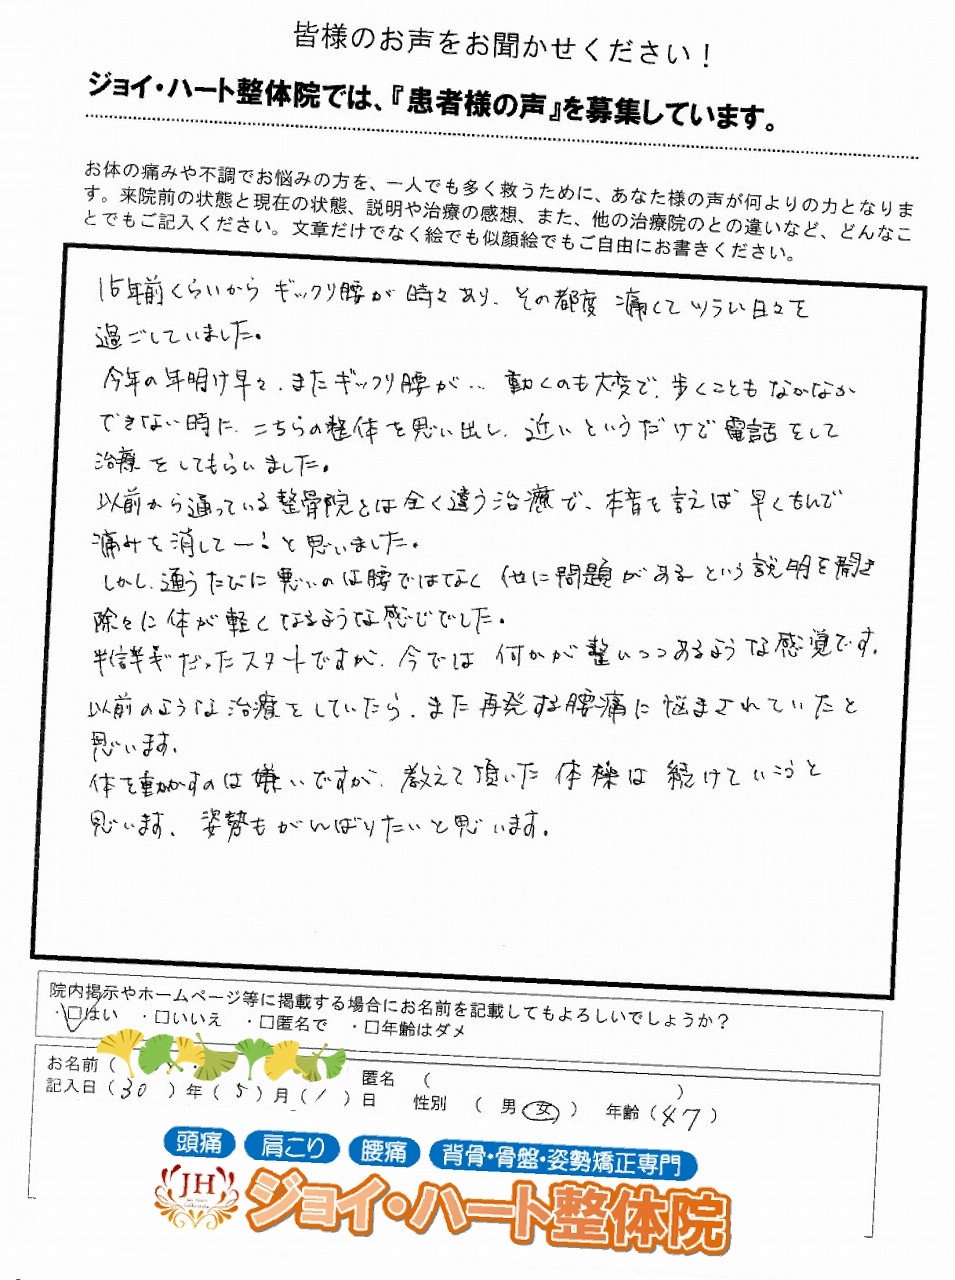 皆様のお声をお聞かせください！
ジョイ・ハート整体院では、『患者様の声』を募集しています。
お体の痛みや不調でお悩みの方を、一人でも多く救うために、あなた様の声が何よりの力となりま
す。来院前の状態と現在の状態、説明や治療の感想、また、他の治療院のとの違いなど、どんなこ
とでもご記入ください。文章だけでなく絵でも似顔絵でもご自由にお書きください。
15年前くらいから ギックリ腰が 時々あり、その都度 痛くてツラい日々を
過ごしていました。
今年の年明け早々、またギックリ腰が… 動くのも大変で、歩くことも なかなか
できない時に、こちらの整体を思い出し、近いというだけで電話をして
治療をしてもらいました。
以前から通っている整骨院とは全く違う治療で、本音を言えば 早くもんで
痛みを消してー！と思いました。
しかし、通うたびに悪いのは腰ではなく 他に問題があるという説明を聞き
除々に体が軽くなるような感じでした。
半信半ギだったスタートですが、今では 何かが整いつつあるような感覚です。
以前のような治療をしていたら、また再発する腰痛に悩まされていたと
思います。
体を動かすのは嫌いですが、教えて頂いた体操は続けていこうと
思います、姿勢もがんばりたいと思います。
院内掲示やホームページ等に掲載する場合にお名前を記載してもよろしいでしょうか？
・☑はい ・□いいえ ・□匿名で ・□年齢はダメ
お名前（ ・ 匿名 （ ）
記入日（30）年（5）月（1）日 性別 （ 男 ・ 女 ） 年齢（47）
頭痛 肩こり 腰痛 背骨・骨盤・姿勢矯正専門
JH ジョイ・ハート整体院